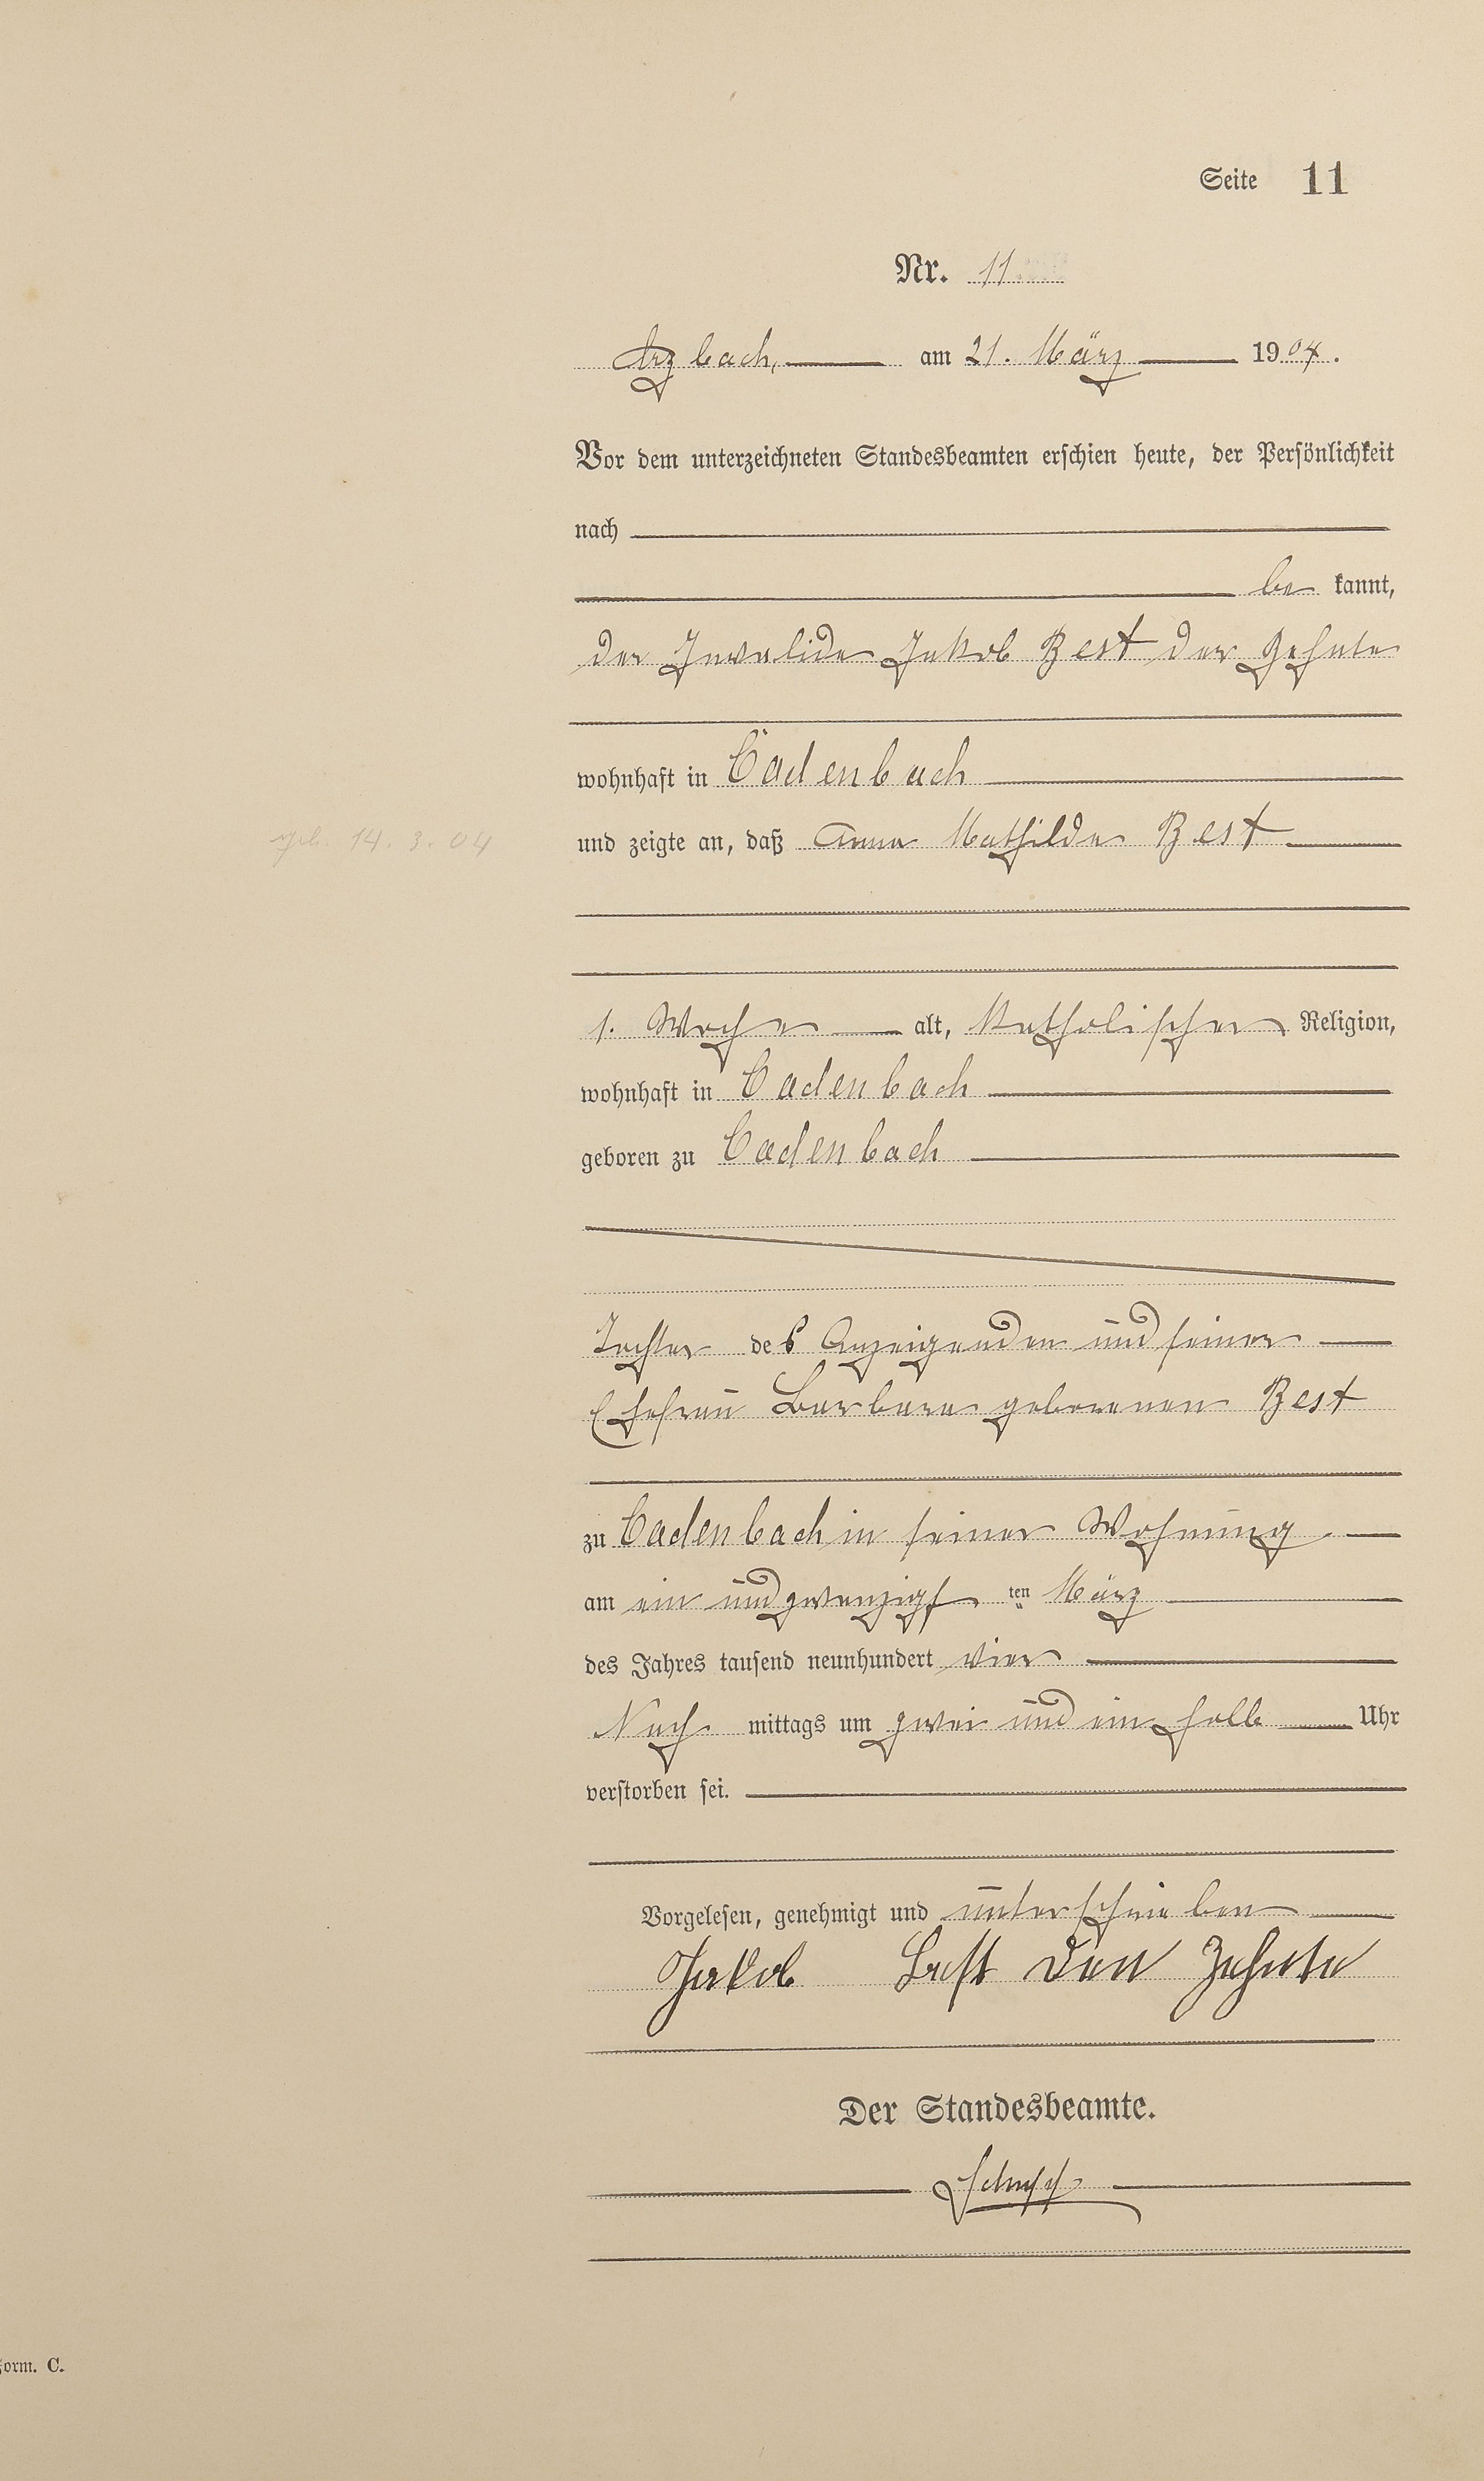 Seite 11
Nr. 11.
Arzbach, am 21. März 1904.
Vor dem unterzeichneten Standesbeamten erschien heute, der Persönlichkeit
nach
be kannt,
der Invalide Jakob Best der Zehnte
wohnhaft in Cadenbach
geb. 14. 3. 04
und zeigte an, daß Anna Mathilde Best
1. Woche alt, katholischer Religion,
wohnhaft in Cadenbach
geboren zu Cadenbach
Tochter des Anzeigenden und seiner
Ehefrau Barbara geborenen Best
zu Cadenbach in seiner Wohnung
am ein und zwanzigs ten März
des Jahres tausend neunhundert vier
Nach mittags um zwei und ein halb Uhr
verstorben sei.
Vorgelesen, genehmigt und unterschrieben
Jakob Best der Zehnte
Der Standesbeamte.
Form. C.